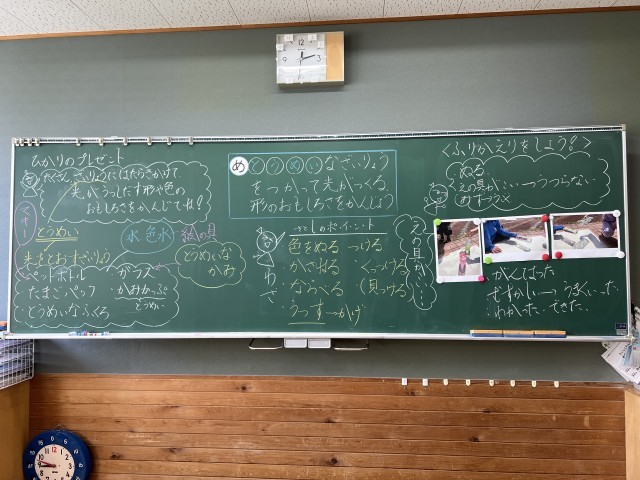 ひかりのプレゼント
たくさんざいりょうにはたらきかけて
光がうつした形や色の
おもしろさをかんじてね!
とうめい
光をとおすざいりょう
水 色水
絵の具
ペットボトル
たまごパック
とうめいなふくろ
ガラス
とうめい
とうめいな
かみ
め とうめいなざいりょう
をつかって光がつくる
形のおもしろさをかんじよう
色をぬる つける
かさねる くっつける
ならべる (見つける
うつす→かげ
えの具が
<ふりかえりをしよう>
ぬる
えの具がこい→うつらない
かくてよかった
むずかしい→うまくいった
わかった。できた。
12
9 3